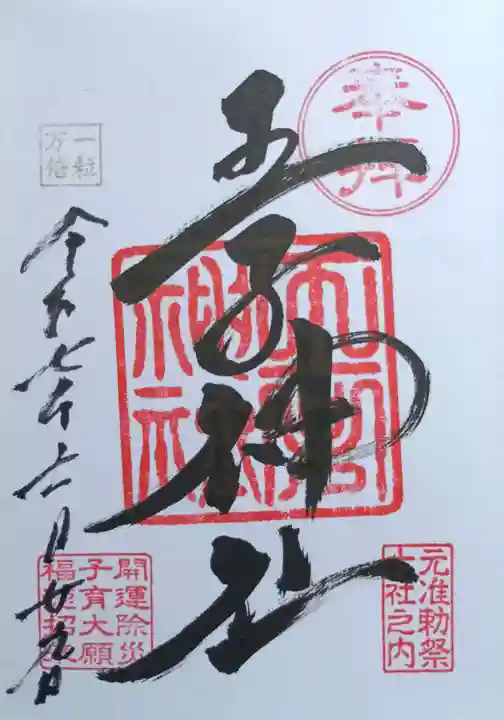 奉拝
元准勅祭
十社之内
王子神社
開運除災
子育大願
一粒
万倍
令和七年六月廿九日